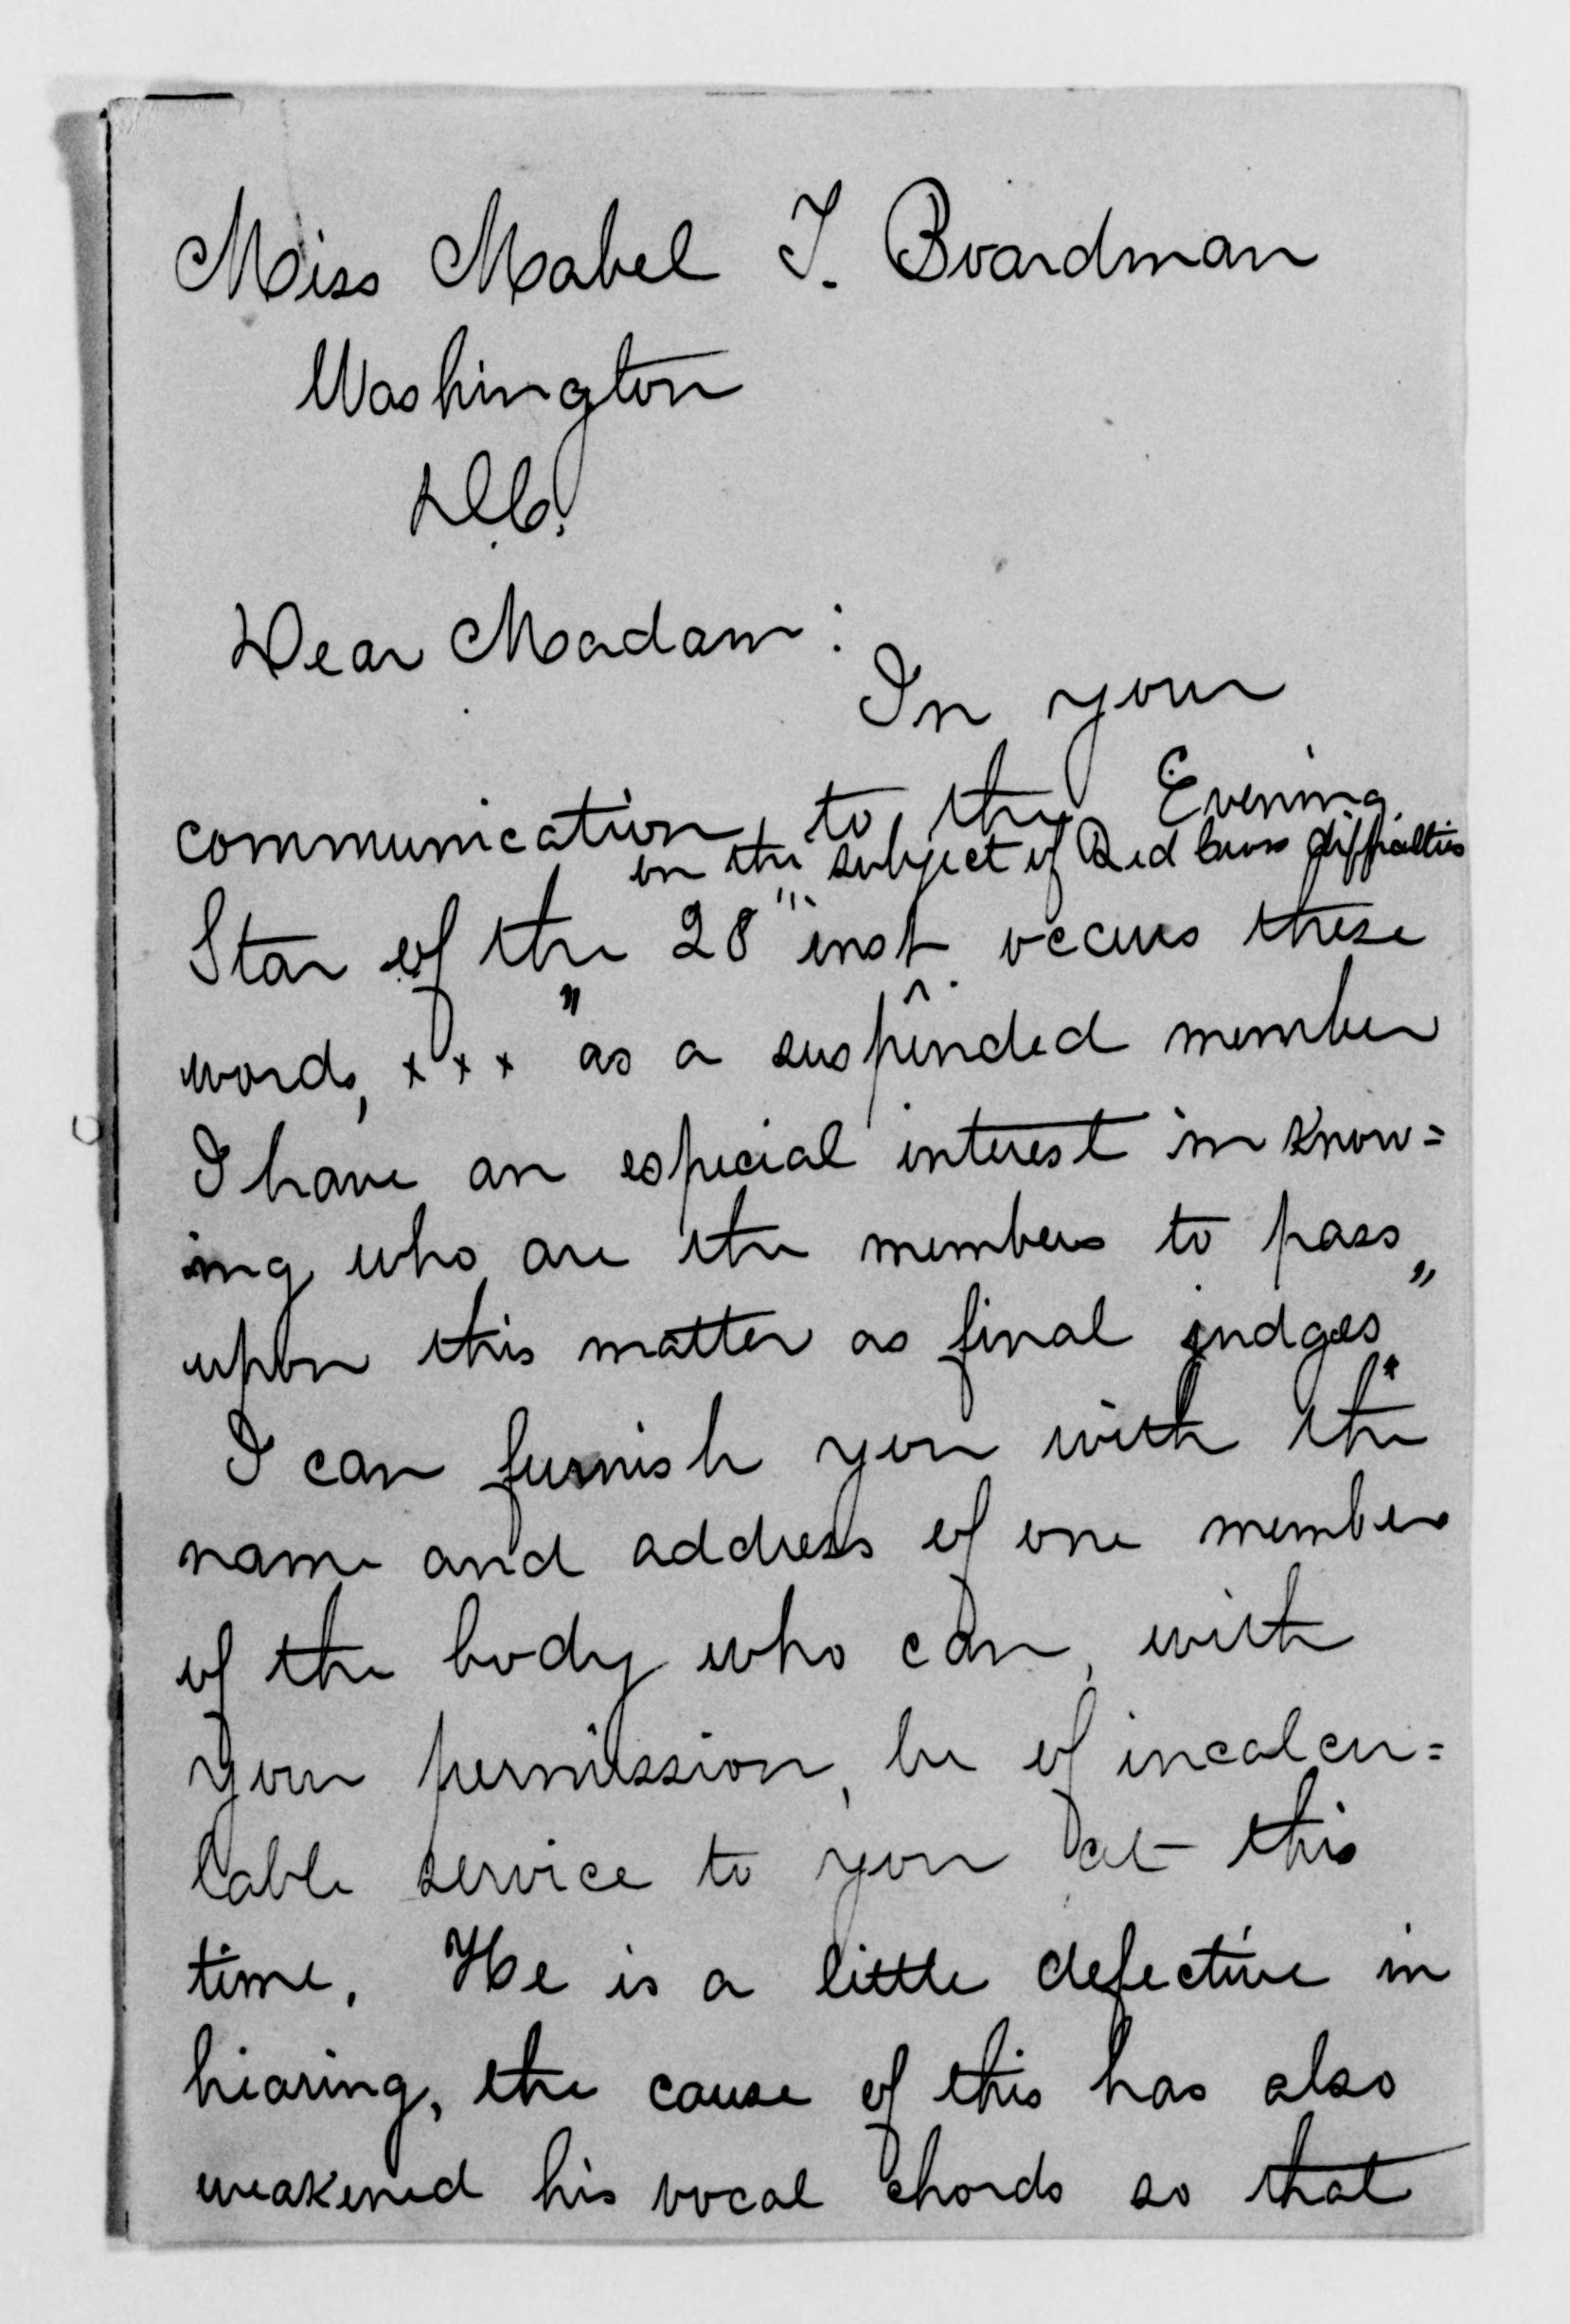 Miss Mabel T. Boardman
Washington
D.C.
Dear Madam:
In your
communication to the Evening
on the subject of Red Cross difficulties
Star of the 28''' inst. occurs these
word, x x x "as a suspended member
I have an especial interest in know=
ing who are the members to pass
upon this matter as final judges"
I can furnish you with the
name and address of one member
of the body who can, with
your permission, be of incalcu=
lable service to you at this
time. He is a little defective in
hearing, the cause of this has also
weakened his vocal chords so that